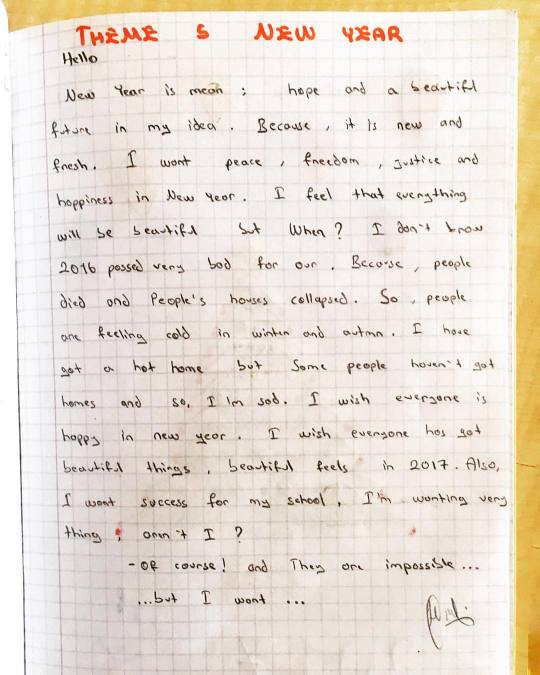 THEME 5 NEW YEAR
Hello
New Year is mean : hope and a beautiful
future in my idea. Because, it is new and
fresh. I want peace, freedom, justice and
happiness in New Year. I feel that everything
will be beautiful but When? I don't know
2016 passed very bad for our. Because, people
died and People's houses collapsed. So, people
are feeling cold in winter and autmn. I have
got a hot home but some people haven't got
homes and so, I I'm sad. I wish everyone is
happy in new year. I wish everyone has got
beautiful things, beautiful feels in 2017. Also,
I want success for my school, I'm wanting very
thing, aren't I?
- OF course! and They are impossible...
...but I want ...